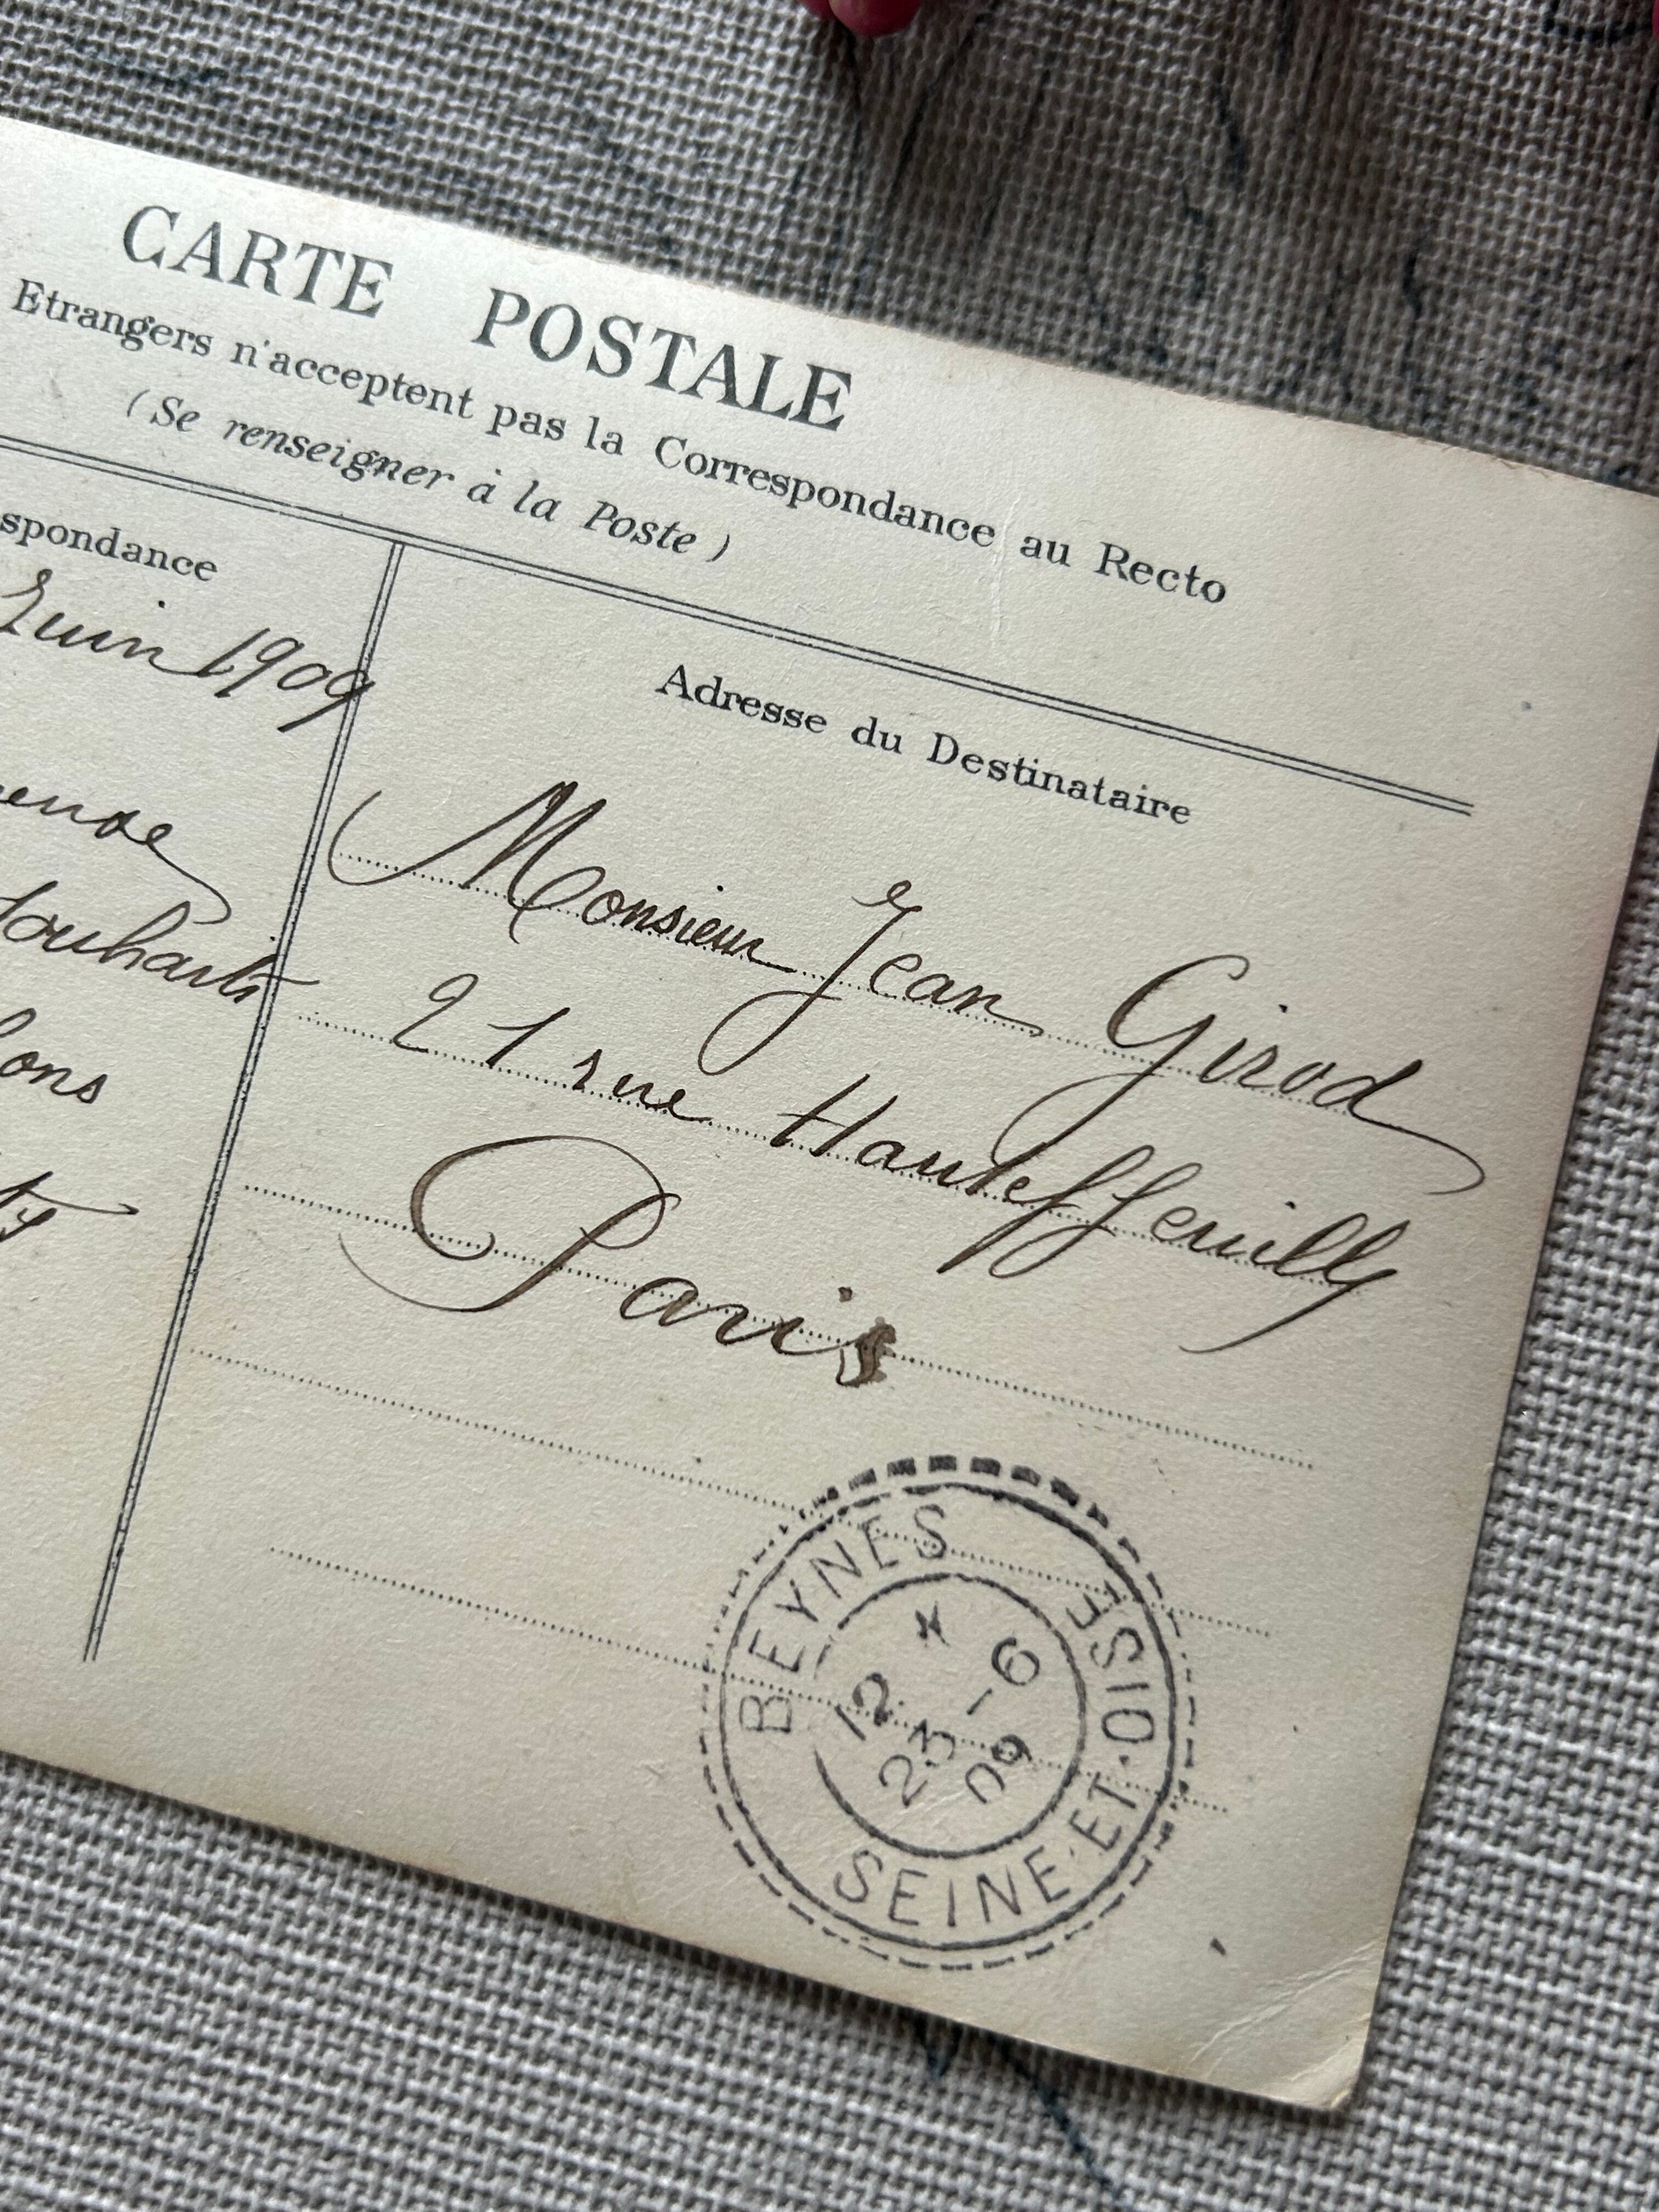 CARTE POSTALE
Etrangers n'acceptent pas la Correspondance au Recto
(Se renseigner à la Poste)
spondance
Juin 1909
Adresse du Destinataire
Monsieur Jean Girod
21 rue Hauteffeuille
Paris
BEYNES
SEINE-ET-OISE
12 *
23 -6
09